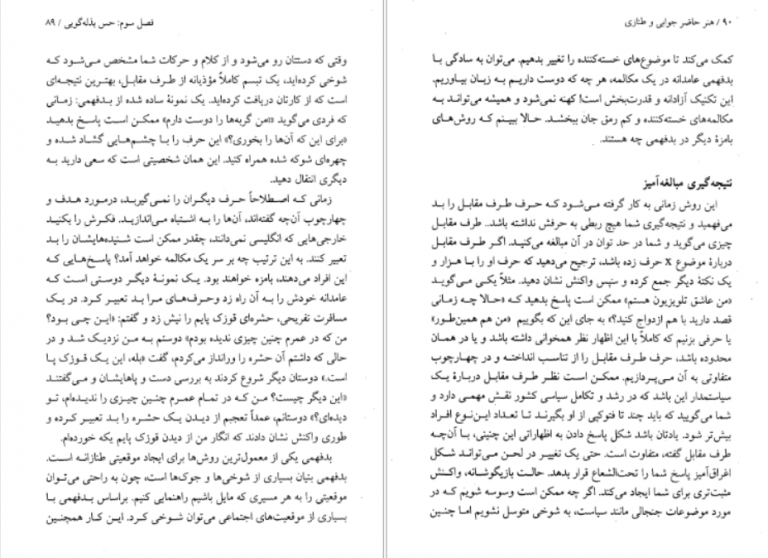 فصل سوم: حس بذله‌گویی / ۸۹
وقتی که دستتان رو می‌شود و از کلام و حرکات شما مشخص می‌شود که
شوخی کرده‌اید، یک تبسم کاملاً مؤذیانه از طرف مقابل، بهترین نتیجه‌ای
است که از کارتان دریافت کرده‌اید. یک نمونهٔ ساده شده از بدفهمی: زمانی
که فردی می‌گوید «من گربه‌ها را دوست دارم» ممکن است پاسخ بدهید
«برای این که آن‌ها را بخوری؟» این حرف را با چشم‌هایی گشاد شده و
چهره‌ای شوکه شده همراه کنید. این همان شخصیتی است که سعی دارید به
دیگری انتقال دهید.
زمانی که اصطلاحاً حرف دیگران را نمی‌گیرید، درمورد هدف و
چهارچوب آن‌چه گفته‌اند، آن‌ها را به اشتباه می‌اندازید. فکرش را بکنید
خارجی‌هایی که انگلیسی نمی‌دانند، چقدر ممکن است شنیده‌هایشان را بد
تعبیر کنند. به این ترتیب چه بر سر یک مکالمه خواهد آمد؟ پاسخ‌هایی که
این افراد می‌دهند، بامزه خواهند بود. یک نمونهٔ دیگر دوستی است که
عامدانه خودش را به آن راه زد وحرف‌های مرا بد تعبیر کرد. در یک
مسافرت تفریحی، حشره‌ای قوزک پایم را نیش زد و گفتم: «این چی بود؟
من که در عمرم چنین چیزی ندیده بودم» دوستم به من نزدیک شد و در
حالی که داشتم آن حشره را ورانداز می‌کردم، گفت «بله، این یک قوزک پا
است.» دوستان دیگر شروع کردند به بررسی دست و پاهایشان و می‌گفتند
«این دیگر چیست؟ من که در تمام عمرم چنین چیزی را ندیده‌ام، تو
دیده‌ای؟» دوستانم، عمداً تعجبم از دیدن یک حشره را بد تعبیر کرده و
طوری واکنش نشان دادند که انگار من از دیدن قوزک پایم یکه خورده‌ام.
بدفهمی یکی از معمول‌ترین روش‌ها برای ایجاد موقعیتی طنازانه است.
بدفهمی بنیان بسیاری از شوخی‌ها و جوک‌ها است، چون به راحتی می‌توان
موقعیتی را به هر مسیری که مایل باشیم راهنمایی کنیم. براساس بدفهمی با
بسیاری از موقعیت‌های اجتماعی می‌توان شوخی کرد. این کار همچنین
۹۰ / هنر حاضر جوابی و طنازی
کمک می‌کند تا موضوع‌های خسته‌کننده را تغییر بدهیم. می‌توان به سادگی با
بدفهمی عامدانه در یک مکالمه، هر چه که دوست داریم به زبان بیاوریم.
این تکنیک آزادانه و قدرت‌بخش است! کهنه نمی‌شود و همیشه می‌تواند به
مکالمه‌های خسته‌کننده و کم رمق جان ببخشد. حالا ببینم که روش‌های
بامزهٔ دیگر در بدفهمی چه هستند.
نتیجه‌گیری مبالغه‌آمیز
این روش زمانی به کار گرفته می‌شود که حرف طرف مقابل را بد
می‌فهمید و نتیجه‌گیری شما هیچ ربطی به حرفش نداشته باشد.. طرف مقابل
چیزی می‌گوید و شما در حد توان در آن مبالغه می‌کنید. اگر طرف مقابل
دربارهٔ موضوع x حرف زده باشد، ترجیح می‌دهید که حرف او را با هزار و
یک نکتهٔ دیگر جمع کرده و سپس واکنش نشان دهید. مثلاً یکی می‌گوید
«من عاشق تلویزیون هستم» ممکن است پاسخ بدهید که «حالا چه زمانی
قصد دارید با هم ازدواج کنید؟» به جای این که بگوییم «من هم همین‌طور»
یا حرفی بزنیم که کاملاً با این اظهار نظر همخوانی داشته باشد و یا در همان
محدوده باشد، حرف طرف مقابل را از تناسب انداخته و در چهارچوب
متفاوتی به آن می‌پردازیم. ممکن است نظر طرف مقابل دربارهٔ یک
سیاستمدار این باشد که در رشد و تکامل سیاسی کشور نقش مهمی دارد و
شما می‌گویید که باید چند تا فتوکپی از او بگیرند تا تعداد این‌نوع افراد
بیش‌تر شود. یادتان باشد شکل پاسخ دادن به اظهاراتی این چنینی، با آن‌چه
طرف مقابل گفته، متفاوت است. حتی یک تغییر در لحن می‌تواند شکل
اغراق‌آمیز پاسخ شما را تحت‌الشعاع قرار بدهد. حالت بازیگوشانه، واکنش
مثبت‌تری برای شما ایجاد می‌کند. اگر چه ممکن است وسوسه شویم که در
مورد موضوعات جنجالی مانند سیاست، به شوخی متوسل نشویم اما چنین